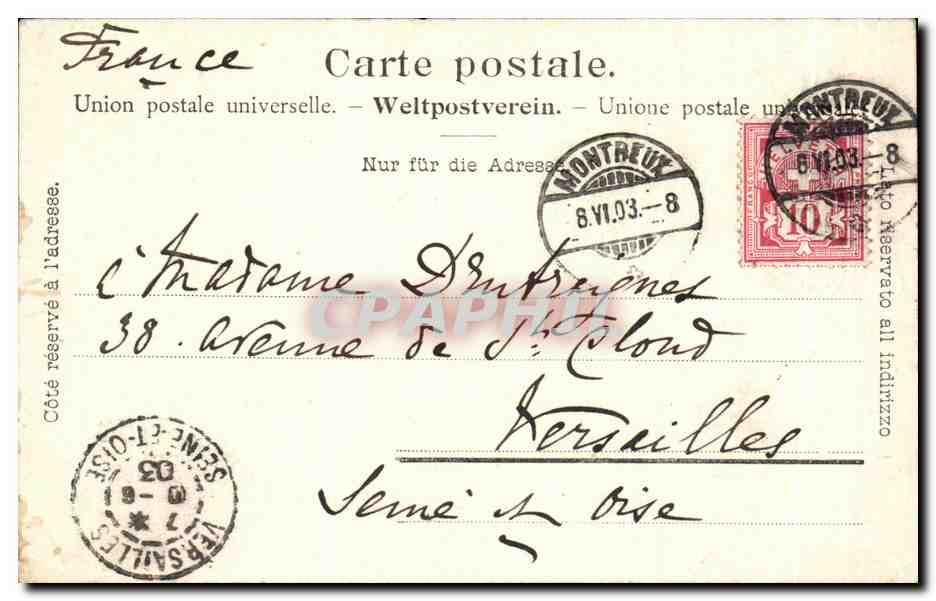 France
Carte postale.
Union postale universelle. – Weltpostverein. – Unione postale un
Nur für die Adresse
Côté réservé à l'adresse.
Lato riservato all indirizzo
MONTREUX
8.VI.03.–8
MONTREUX
8.VI.03.–8
FRANCO
10
à Madame D'Entraignes
CPAPHIL
38. avenue de St. Cloud
Versailles
Seine et Oise
VERSAILLES
7 *
9 - 6
03
SEINE-ET-OISE